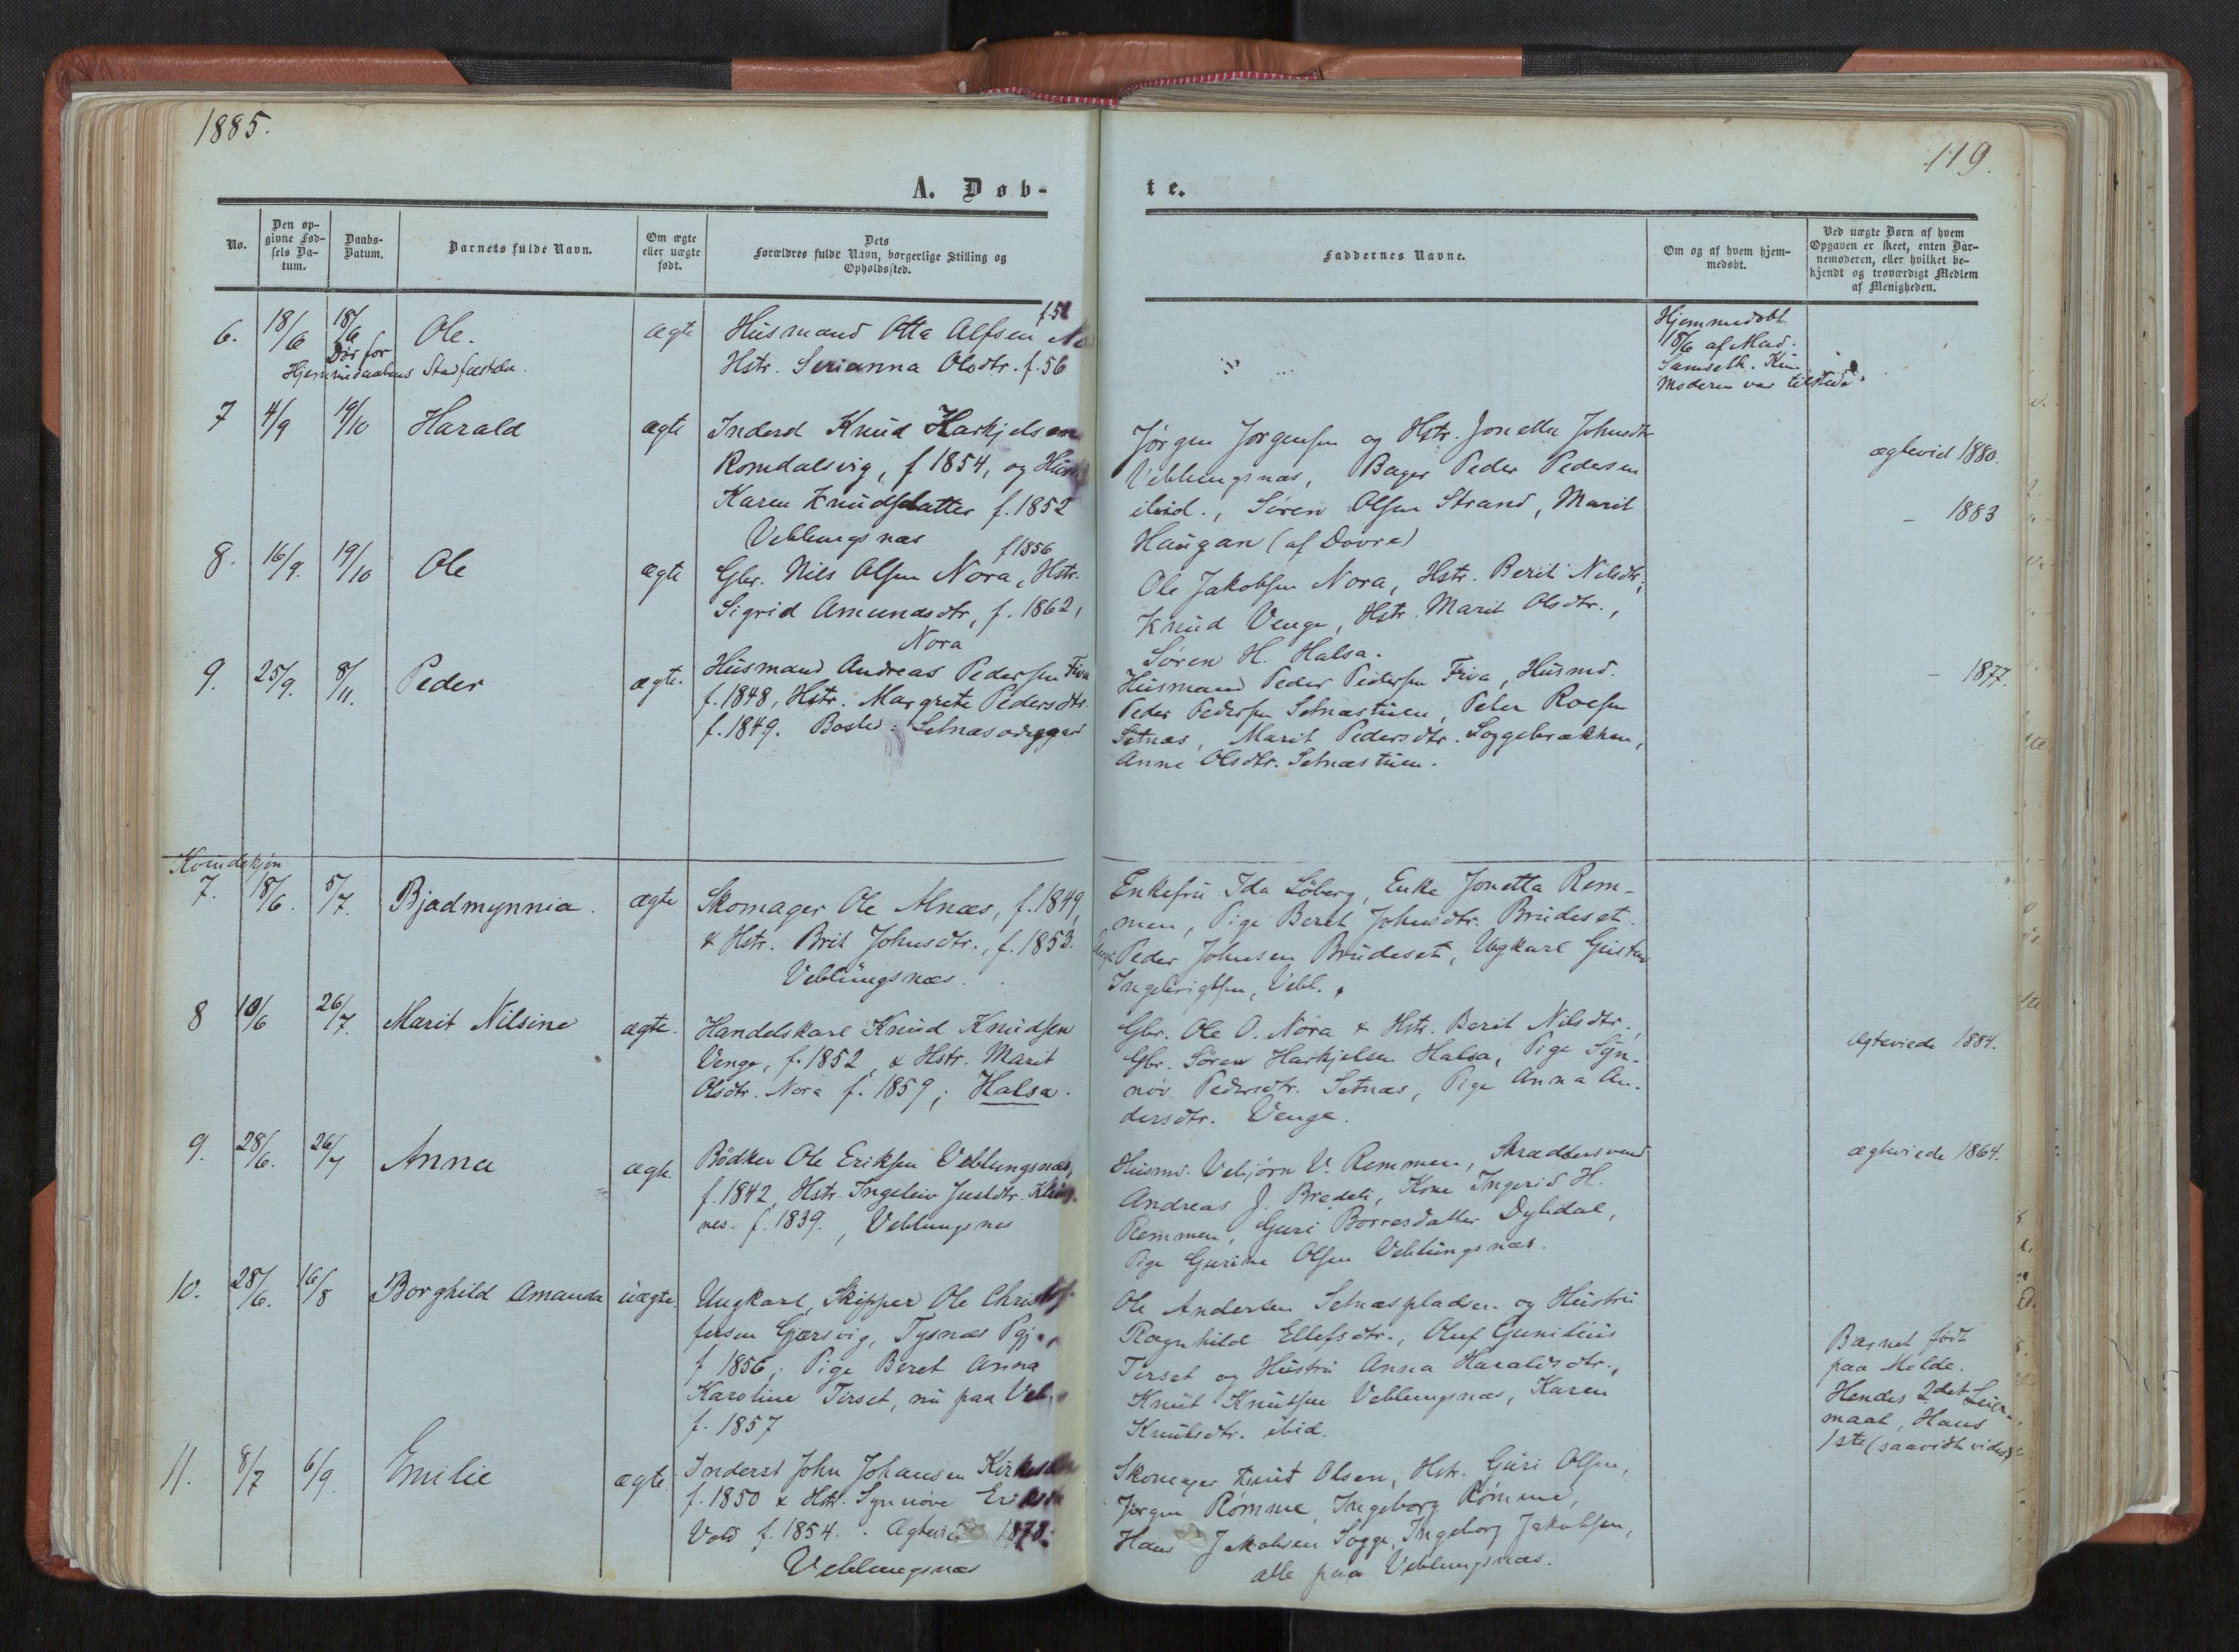 1885.
119.
A. Døb-
te.
No.
Den op-
givne Fød-
sels Da-
tum.
Daabs-
Datum.
Barnets fulde Navn.
Om ægte
eller uægte
født.
Dets
Forældres fulde Navn, borgerlige Stilling og
Opholdssted.
Faddernes Navne.
Om og af hvem hjem-
medøbt.
Ved uægte Børn af hvem
Opgaven er skeet, enten Bar-
nemoderen, eller hvilket be-
kjendt og troværdigt Medlem
af Menigheden.
6. 18/6 18/6 Ole. ægte
Død før
Hjemmedaabens Stadfæstelse.
Husmand Otta Alfsen
Hstr. Serianna Olsdtr. f. 56
Hjemmedøbt
18/6 af Mad.
Samseth. Kun
Moderen var tilstede.
7 4/9 19/10 Harald ægte
Inderst Knud Harkjelsen
Romdalsvig, f 1854, og
Karen Knudsdatter f. 1852
Veblungsnæs
Jørgen Jørgensen og Hstr. Jonetta Johnsdtr
Veblungsnæs, Bager Peder Pedersen
ibid., Søren Olsen Strand, Marit
Haugan (af Dovre)
ægtevid 1880.
8. 16/9. 19/10 Ole ægte
f 1856
Gbr. Nils Olsen Nora, Hstr.
Sigrid Amundsdtr, f. 1862,
Nora
Ole Jakobsen Nora, Hstr. Berit Nilsdtr,
Knud Venge, Hstr. Marit Olsdtr.,
Søren H. Halsa.
– 1883
9. 25/9. 8/11. Peder ægte.
Husmand Andreas Pedersen Fiva
f. 1848, Hstr. Margrete Pedersdtr.
f. 1849. Bosted: Setnæsødegard
Husmand Peder Pedersen Fiva, Husmd.
Peder Pedersen Setnæstuen, Peter Roesen
Setnæs, Marit Pedersdtr. Soggebrækken,
Anne Olsdtr. Setnæstuen.
– 1877.
Kvindekjøn
7. 18/6. 5/7. Bjadmynnia. ægte
Skomager Ole Alnæs, f. 1849,
& Hstr. Brit Johnsdtr., f. 1853.
Veblungsnæs.
Enkefru Ida Löberg, Enke Jonetta Rem-
men, Pige Beret Johnsdtr. Brudeset.
Peder Johnsen Brudeset, Ungkarl Gustav
Ingebrigtsen, Vebl.
8 10/6 26/7. Marit Nilsine ægte.
Handelskarl Knud Knudsen
Venge, f. 1852, & Hstr. Marit
Olsdtr. Nora f. 1859; Halsa.
Gbr. Ole O. Nora & Hstr. Berit Nilsdtr.,
Gbr. Søren Harkjelsen Halsa, Pige Syn-
növ Pedersdtr. Setnæs, Pige Anna An-
dersdtr. Venge.
Ægteviede 1884.
9. 28/6. 26/7 Anna ægte.
Bödker Ole Eriksen Veblungsnæs,
f. 1842, Hstr. Ingeleiv Jueldtr.
nes f. 1839., Veblungsnes
Husmd. Vebjørn V. Remmen, Skræddersvend
Andreas J. Bredeli, Kone Ingerid H.
Remmen, Guri Børresdatter Dyhdal,
Pige Gurine Olsen Veblungsnæs.
ægteviede 1864.
10. 28/6. 16/8 Borghild Amanda uægte.
Ungkarl, Skipper Ole Christof-
fersen Gjærsvig, Tysnæs Pgj.,
f 1856; Pige Beret Anna
Karoline Tirset, nu paa Veb.
f. 1857
Ole Andersen Setnæspladsen og Hustru
Ragnhild Ellefsdtr., Oluf Gunilius
Tirset og Hustru Anna Haraldsdtr.,
Knut Knutsen Veblungsnæs, Karen
Knutsdtr. ibid.
Barnet født
paa Molde.
Hendes 2det Leier-
maal, Hans
1ste (saavidt vides)
11. 8/7 6/9. Emilie ægte.
Inderst John Johansen
f. 1850 & Hstr. Synnöve
Vold f. 1854. Ægtevied 1878.
Veblungsnæs
Skomager Knut Olsen, Hstr. Guri Olsen,
Jørgen Rømme, Ingeborg Rømme,
Hans Jakobsen Sogge, Ingeborg Jakobsen,
alle paa Veblungsnæs.